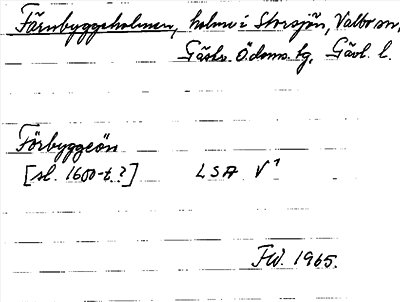 Färnbyggeholmen, holme i Storsjön, Valbo sn,
Gästr. Ö. doms. tg, Gävl. l.
Förbyggeön
[sl. 1600-t.?] LSA V¹
FW. 1965.